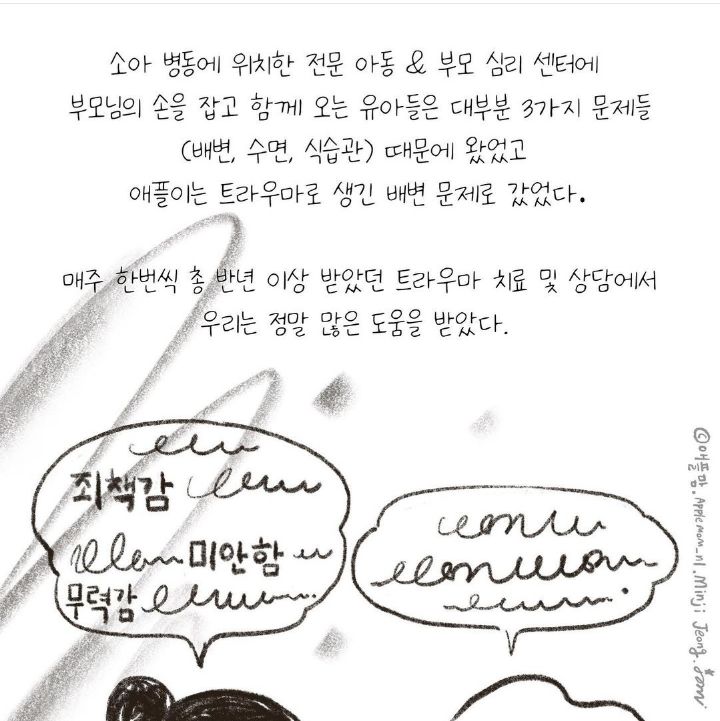 소아 병동에 위치한 전문 아동 & 부모 심리 센터에
부모님의 손을 잡고 함께 오는 유아들은 대부분 3가지 문제들
(배변, 수면, 식습관) 때문에 왔었고
애플이는 트라우마로 생긴 배변 문제로 갔었다.
매주 한번씩 총 반년 이상 받았던 트라우마 치료 및 상담에서
우리는 정말 많은 도움을 받았다.
죄책감
미안함
무력감
©애플맘.Applemom_nl.Minji Jeong.